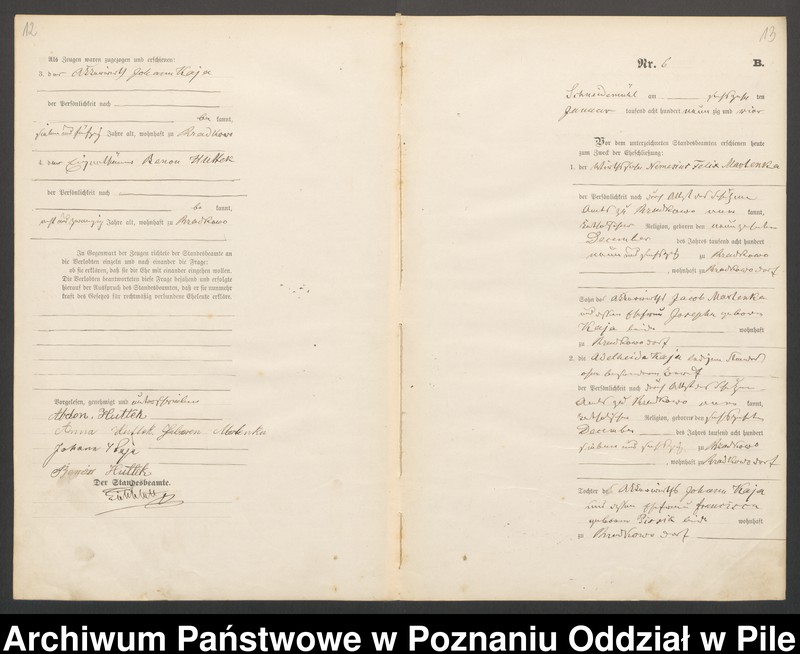 12
Als Zeugen waren zugezogen und erschienen:
3. der Ackerwirth Johann Kaja
der Persönlichkeit nach
be kannt,
sieben und fünfzig Jahre alt, wohnhaft zu Bradkowo
4. der Eigenthümer Huttek
der Persönlichkeit nach
be kannt,
Jahre alt, wohnhaft zu Bradkowo
In Gegenwart der Zeugen richtete der Standesbeamte an
die Verlobten einzeln und nach einander die Frage:
ob sie erklären, daß sie die Ehe mit einander eingehen wollen.
Die Verlobten beantworteten diese Frage bejahend und erfolgte
hierauf der Ausspruch des Standesbeamten, daß er sie nunmehr
kraft des Gesetzes für rechtmäßig verbundene Eheleute erkläre.
Vorgelesen, genehmigt und unterschrieben
Huttek
Anna Huttek, geboren Marlenka
Johann Kaja
Huttek
Der Standesbeamte.
13
Nr. 6
B.
Schneidemühl am ten
Januar tausend acht hundert neun zig und vier
Vor dem unterzeichneten Standesbeamten erschienen heute
zum Zweck der Eheschließung:
1. der Nemesius Felix Marlenka
der Persönlichkeit nach durch Attest des
Amts zu Bradkowo kannt,
katholischer Religion, geboren den neunzehnten
December des Jahres tausend acht hundert
neun und sechszig zu Bradkowo
, wohnhaft zu Bradkowo dorf
Sohn des Ackerwirths Jacob Marlenka
und dessen Ehefrau Josepha geborene
Kaja beide wohnhaft
zu Bradkowo dorf
2. die Adelheida Kaja ledigen Standes
ohne besonderen Beruf
der Persönlichkeit nach durch Attest des
Amts zu Bradkowo kannt,
katholischer Religion, geboren den sechszehnten
December des Jahres tausend acht hundert
sieben und sechszig zu Bradkowo
, wohnhaft zu Bradkowo dorf
Tochter des Ackerwirths Johann Kaja
und dessen Ehefrau Francisca
geborene beide wohnhaft
zu Bradkowo dorf
Archiwum Państwowe w Poznaniu Oddział w Pile